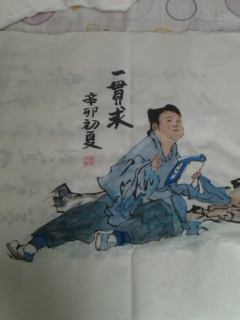 一貫求
辛卯初夏